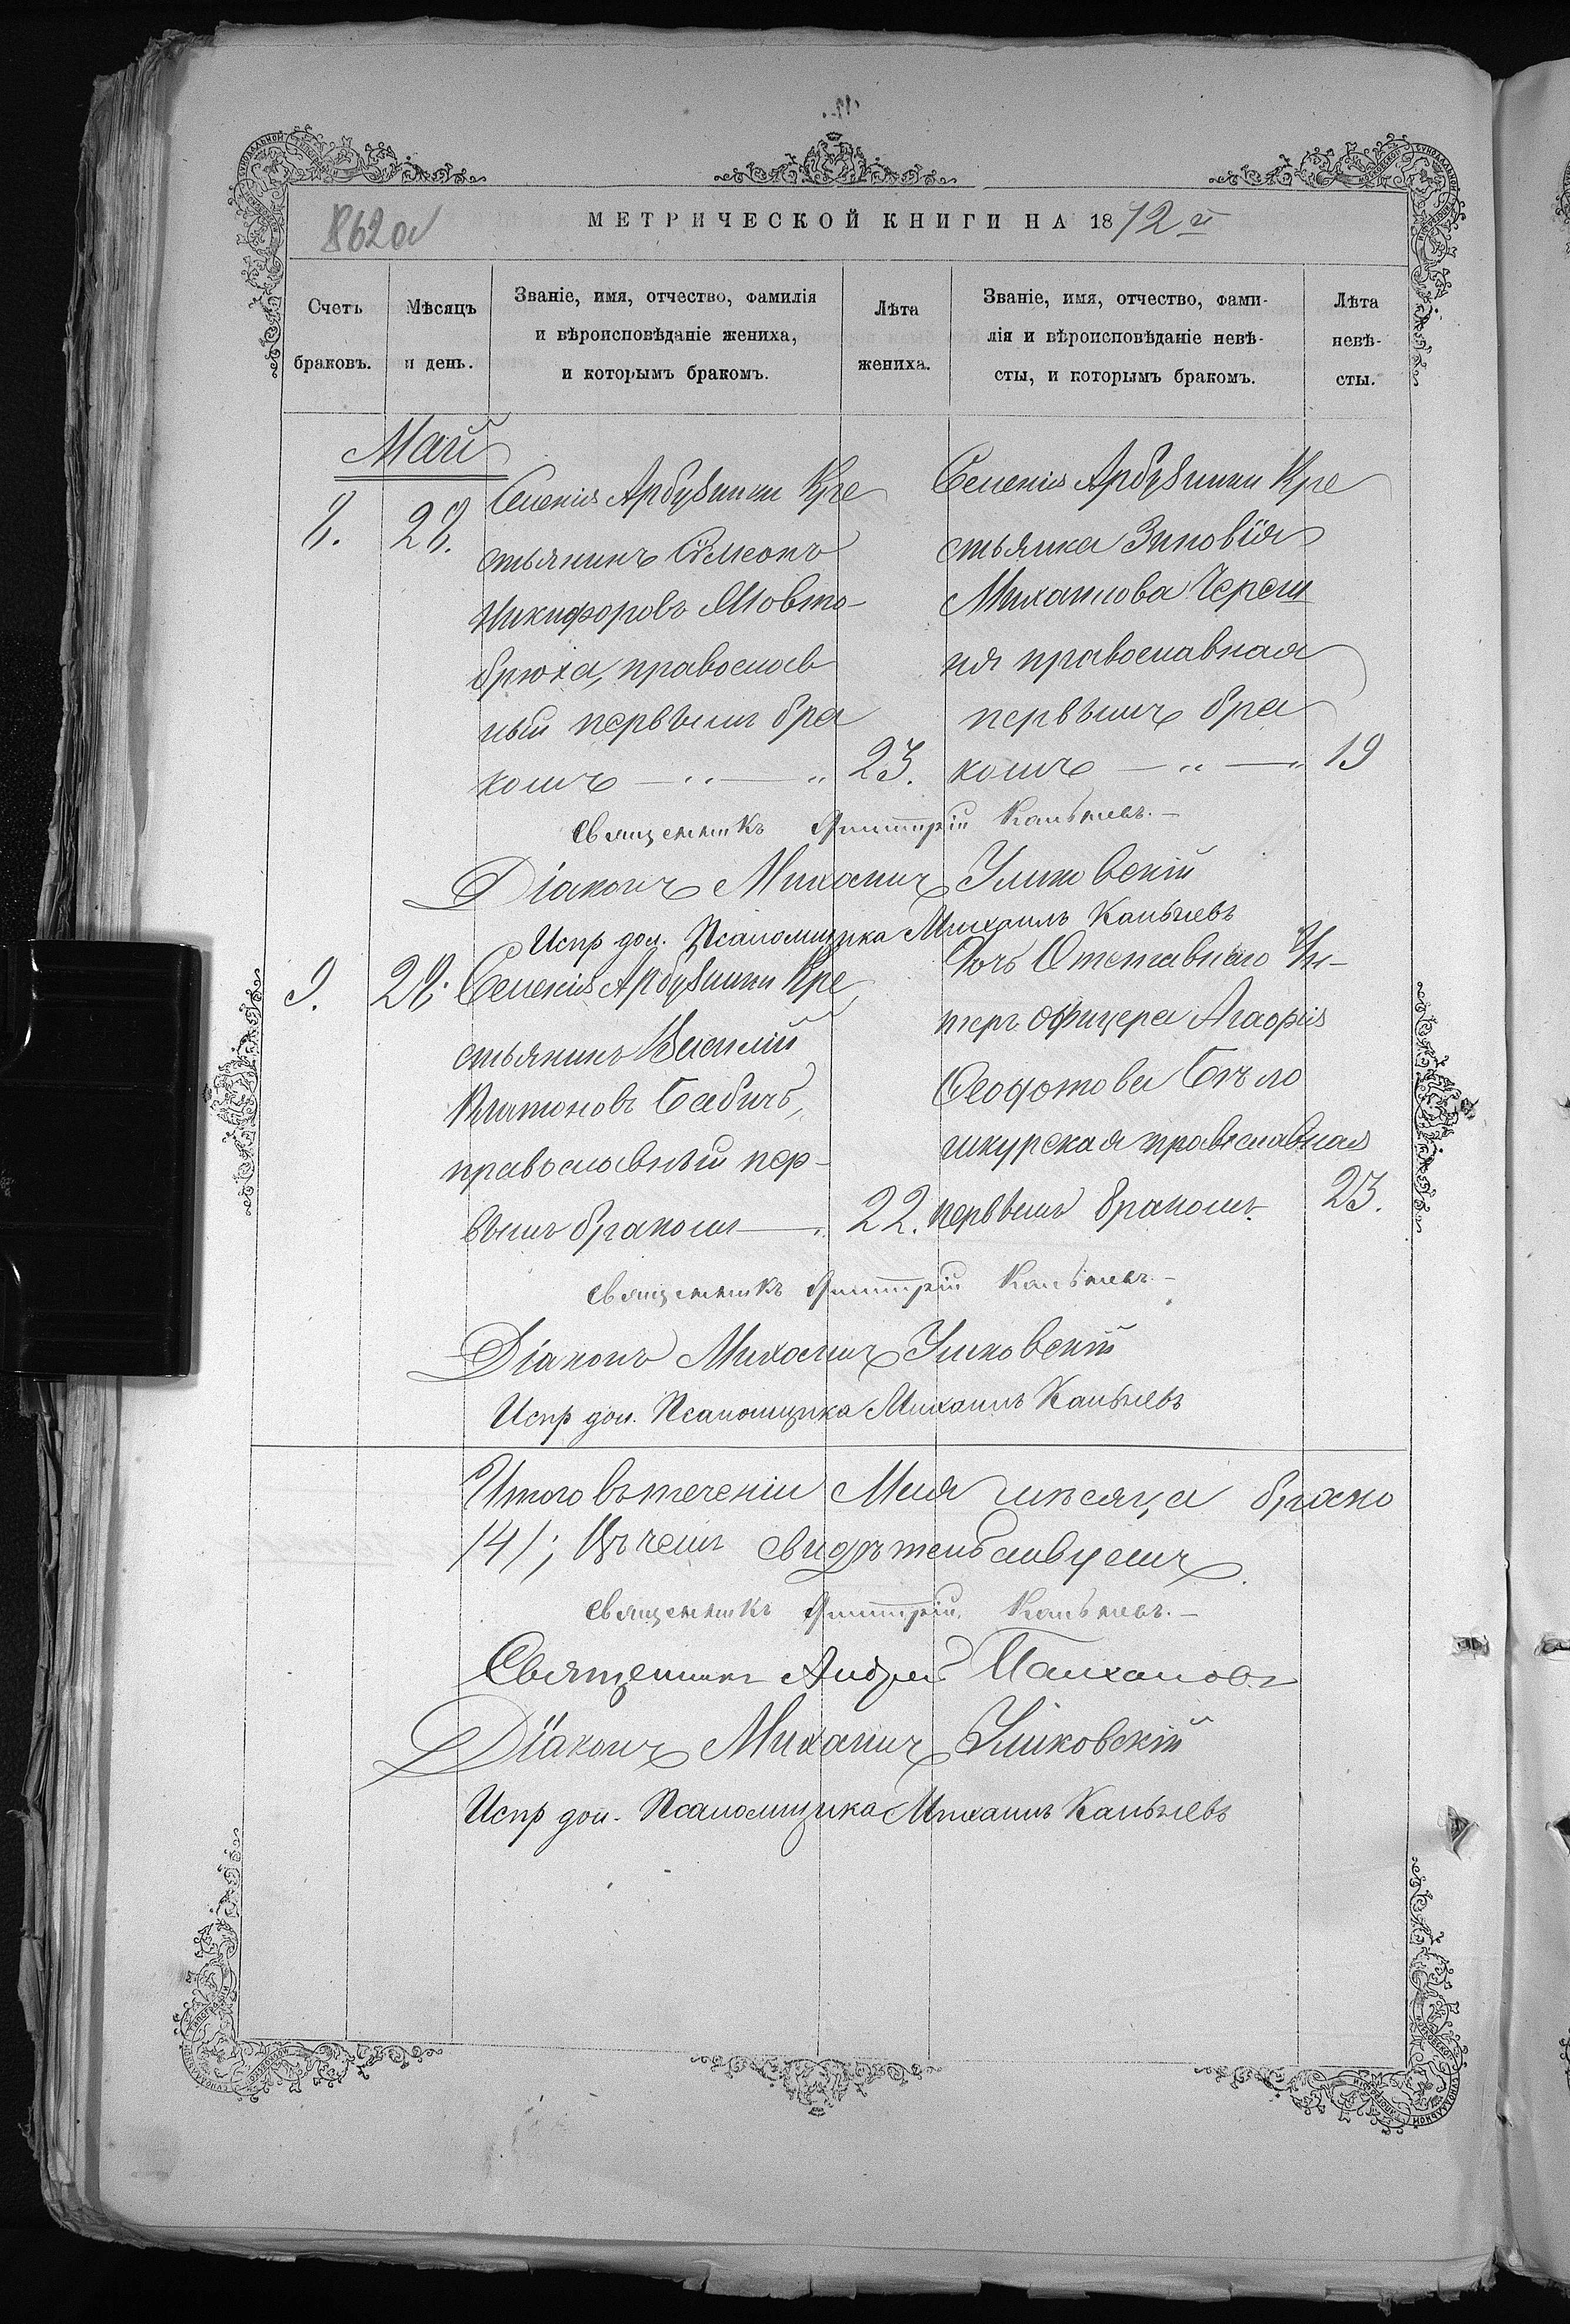 862об
МЕТРИЧЕСКОЙ КНИГИ НА 1872й
Счетъ браковъ.
Мѣсяцъ и день.
Званіе, имя, отчество, фамилія
и вѣроисповѣданіе жениха,
и которымъ бракомъ.
Лѣта жениха.
Званіе, имя, отчество, фами-
лія и вѣроисповѣданіе невѣ-
сты, и которымъ бракомъ.
Лѣта невѣ-
сты.
Май
8. 28.
Селенія Арбузинки Кре
стьянинъ Сѵмеонъ
Никифоровъ Мовто-
брюха, православ
ный первымъ бра
комъ — „ — „ 23.
Селенія Арбузинки Кре
стьянка Зиновія
Михаилова Череш
ня православная
первымъ бра
комъ — „ — „ 19
Священникъ Димитрій
Діаконъ Михаилъ
Испр дол. Псаломщика Михаилъ
9. 28.
Селенія Арбузинки Кре
стьянинъ Василій
Платоновъ Бабичъ,
православный пер-
вымъ бракомъ — „ 22.
Дочь Отставнаго Ун-
теръ Офицера Агафія
Феодотова Бѣло
шкурская православная
первымъ бракомъ. 23.
Священникъ Димитрій
Діаконъ Михаилъ
Испр дол. Псаломщика Михаилъ
Итого въ теченіи Мая мѣсяца брако
/4/; Въ чемъ свидѣтельствуемъ.
Священникъ Димитрій
Священникъ Андрей
Діаконъ Михаилъ
Испр дол. Псаломщика Михаилъ